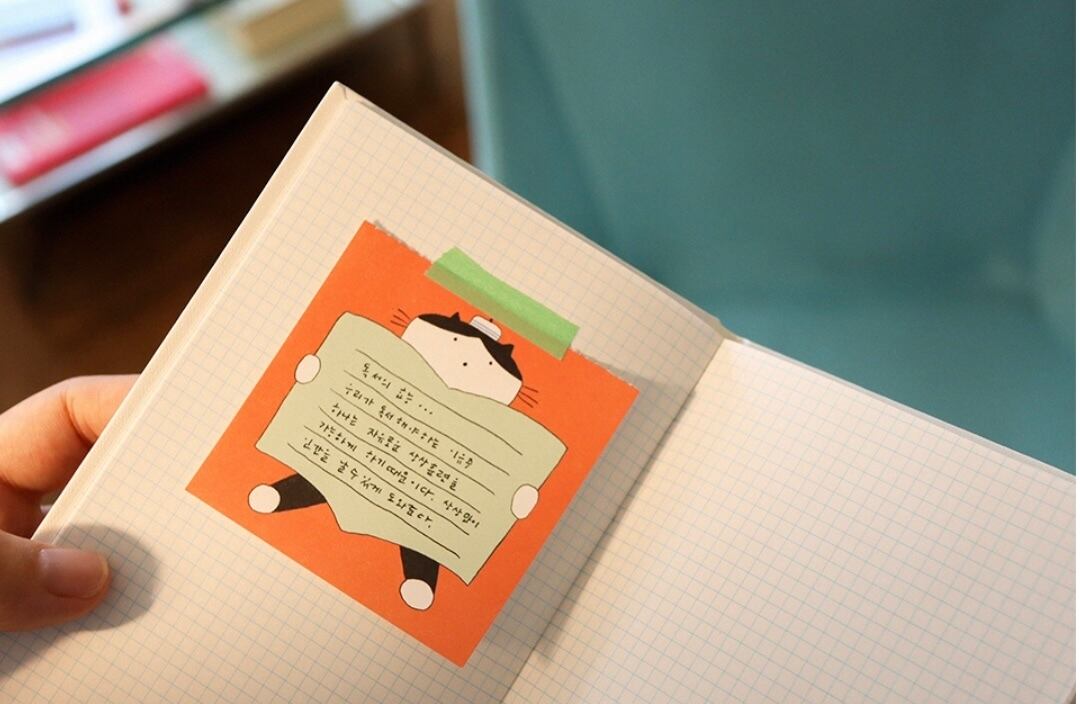 독서의 효능...
우리가 독서해야하는 이유中
하나는 자유로운 상상훈련을
가능하게 하기때문이다. 상상력이
인간을 날 수 있게 도와준다.